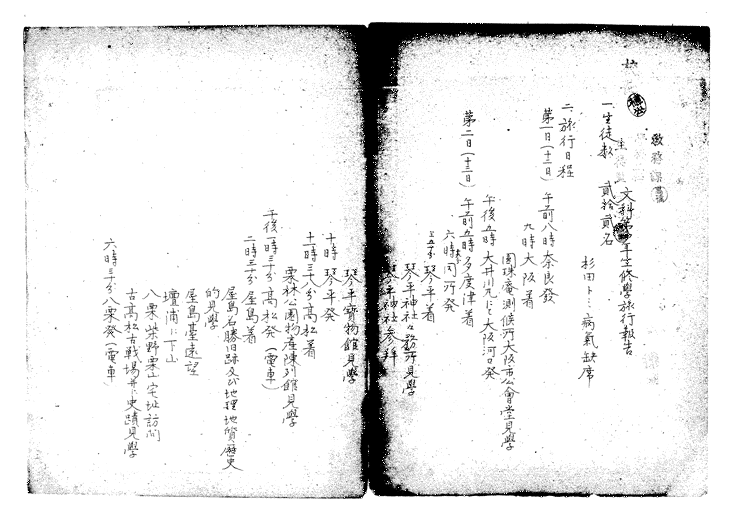 文科第 年生修學旅行報告
一、生徒数 貳拾貳名
杉田ト 病氣缺席
二、旅行日程
第一日(十一日) 午前八時奈良發
九時大阪着
圓珠庵測候所大阪市公會堂見學
午後五時大井川丸ニ大阪河口發
第二日(十二日) 午前五時多度津着
六時 同所發
琴平着
琴平神社々務所見學
琴平神社参拝
琴平寳物館見學
十時 琴平發
十一時三十八分高松着
栗林公園物産陳列館見學
午後一時三十分高松發(電車)
二時三十分屋島着
屋島名勝旧跡及ビ地理地質歴史
的見學
屋島臺遠望
壇浦ニ下山
八栗柴野栗山宅址訪問
古高松古戰場并ニ史蹟見學
六時三十分八栗發(電車)